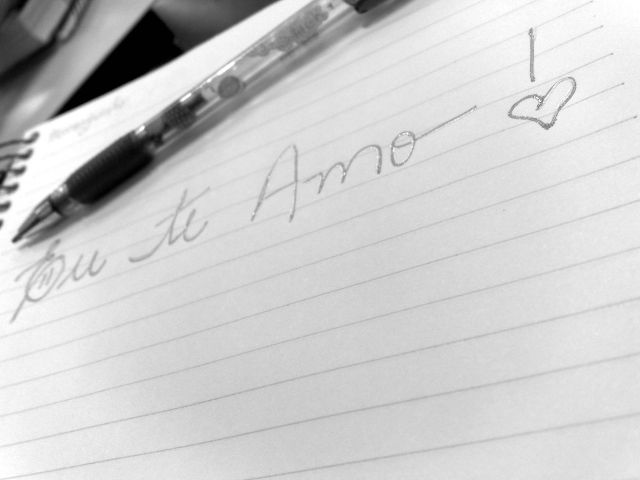 Eu te Amo!